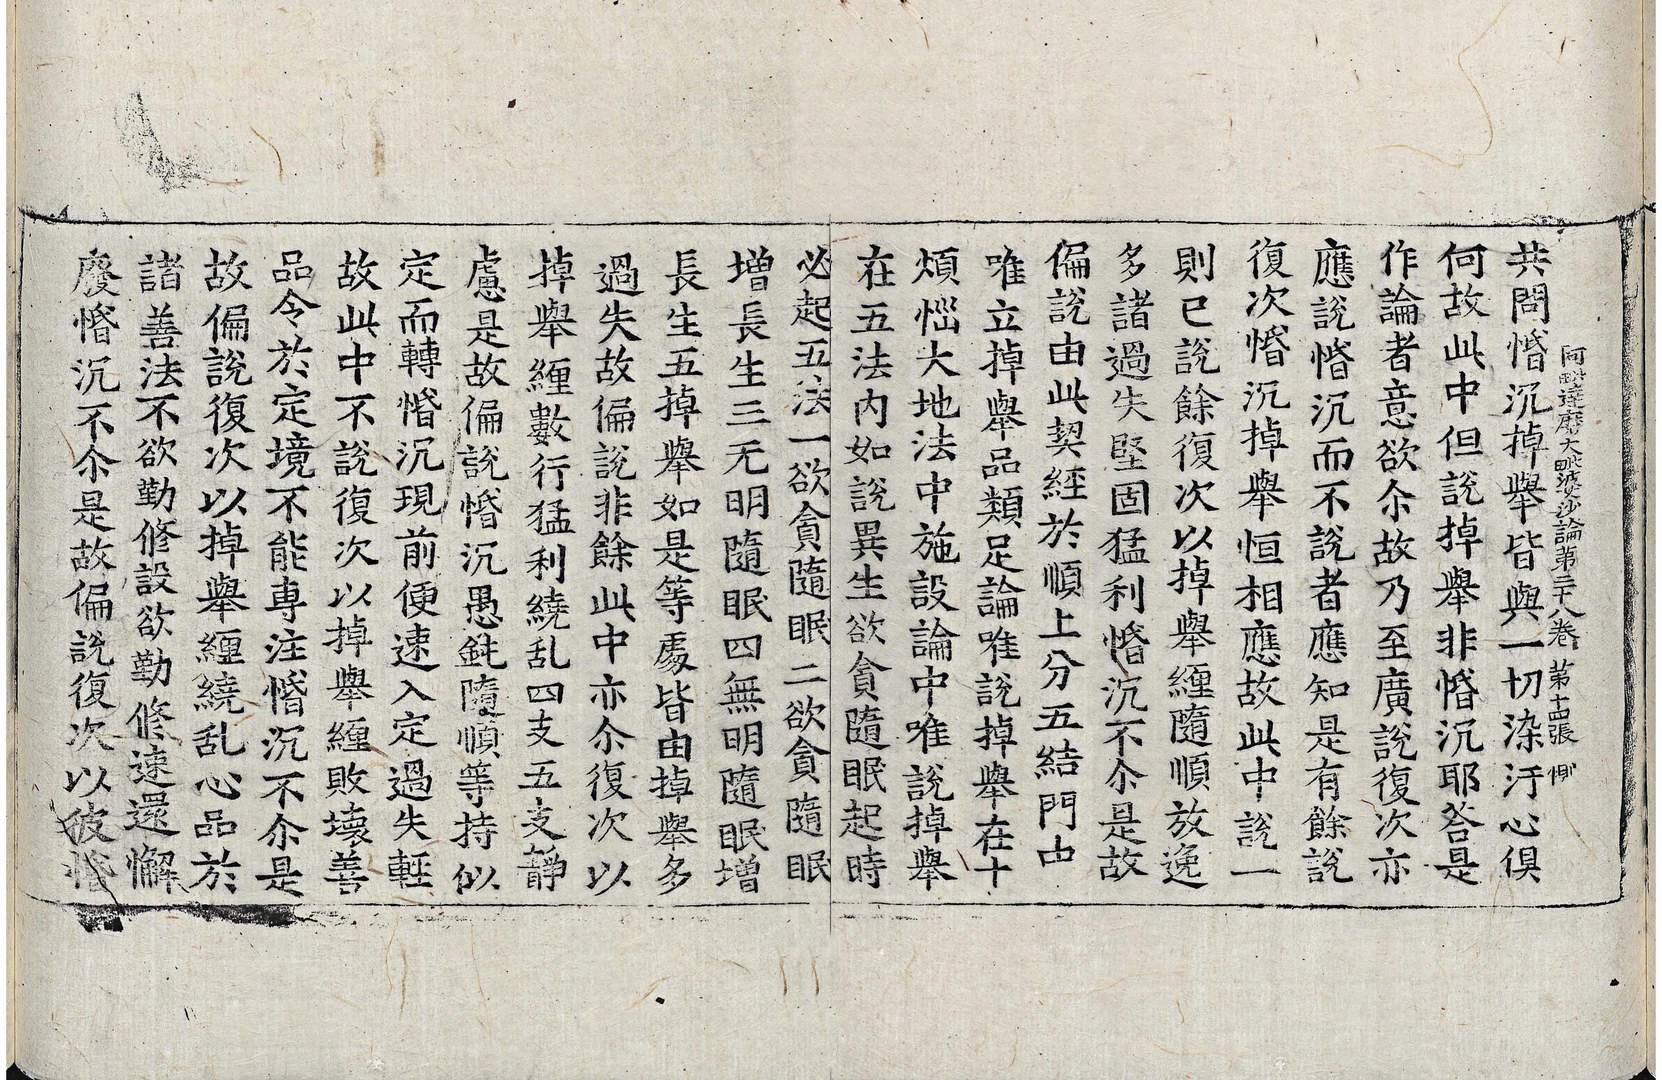 阿毗達磨大毗婆沙論第三十八卷 第十四張 惻
共問惛沉掉舉皆與一切染汙心俱
何故此中但說掉舉非惛沉耶答是
作論者意欲尒故乃至廣說復次亦
應說惛沉而不說者應知是有餘說
復次惛沉掉舉恒相應故此中說一
則已說餘復次以掉舉纏隨順放逸
多諸過失堅固猛利惛沉不尒是故
偏說由此契經於順上分五結門中
唯立掉舉品類足論唯說掉舉在十
煩惱大地法中施設論中唯說掉舉
在五法內如說異生欲貪隨眠起時
必起五法一欲貪隨眠二欲貪隨眠
增長生三无明隨眠四無明隨眠增
長生五掉舉如是等處皆由掉舉多
過失故偏說非餘此中亦尒復次以
掉舉纏數行猛利繞乱四支五支靜
慮是故偏說惛沉愚鈍隨順等持似
定而轉惛沉現前便速入定過失輕
故此中不說復次以掉舉纏敗壞善
品令於定境不能專注惛沉不尒是
故偏說復次以掉舉纏繞乱心品於
諸善法不欲勤修設欲勤修速還懈
廢惛沉不尒是故偏說復次以彼惛